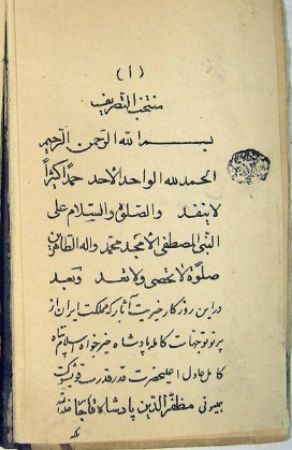 (۱)
منتخب التصریف
بسم الله الرحمن الرحیم
الحمد لله الواحد الاحد حمداً کثیراً
لا ینفد والصلوة والسلام علی
النبی المصطفی الامجد محمد واله الطاهرین
صلوة لا تحصی ولا تعد وبعد
در این روزگار خیریت آثار که مملکت ایران از
پرتو توجهات کامله پادشاه خیرخواه اسلام پناه
کامل عادل اعلیحضرت قدر قدرت قویشوکت
همیونی مظفر الدین پادشاه قاجار